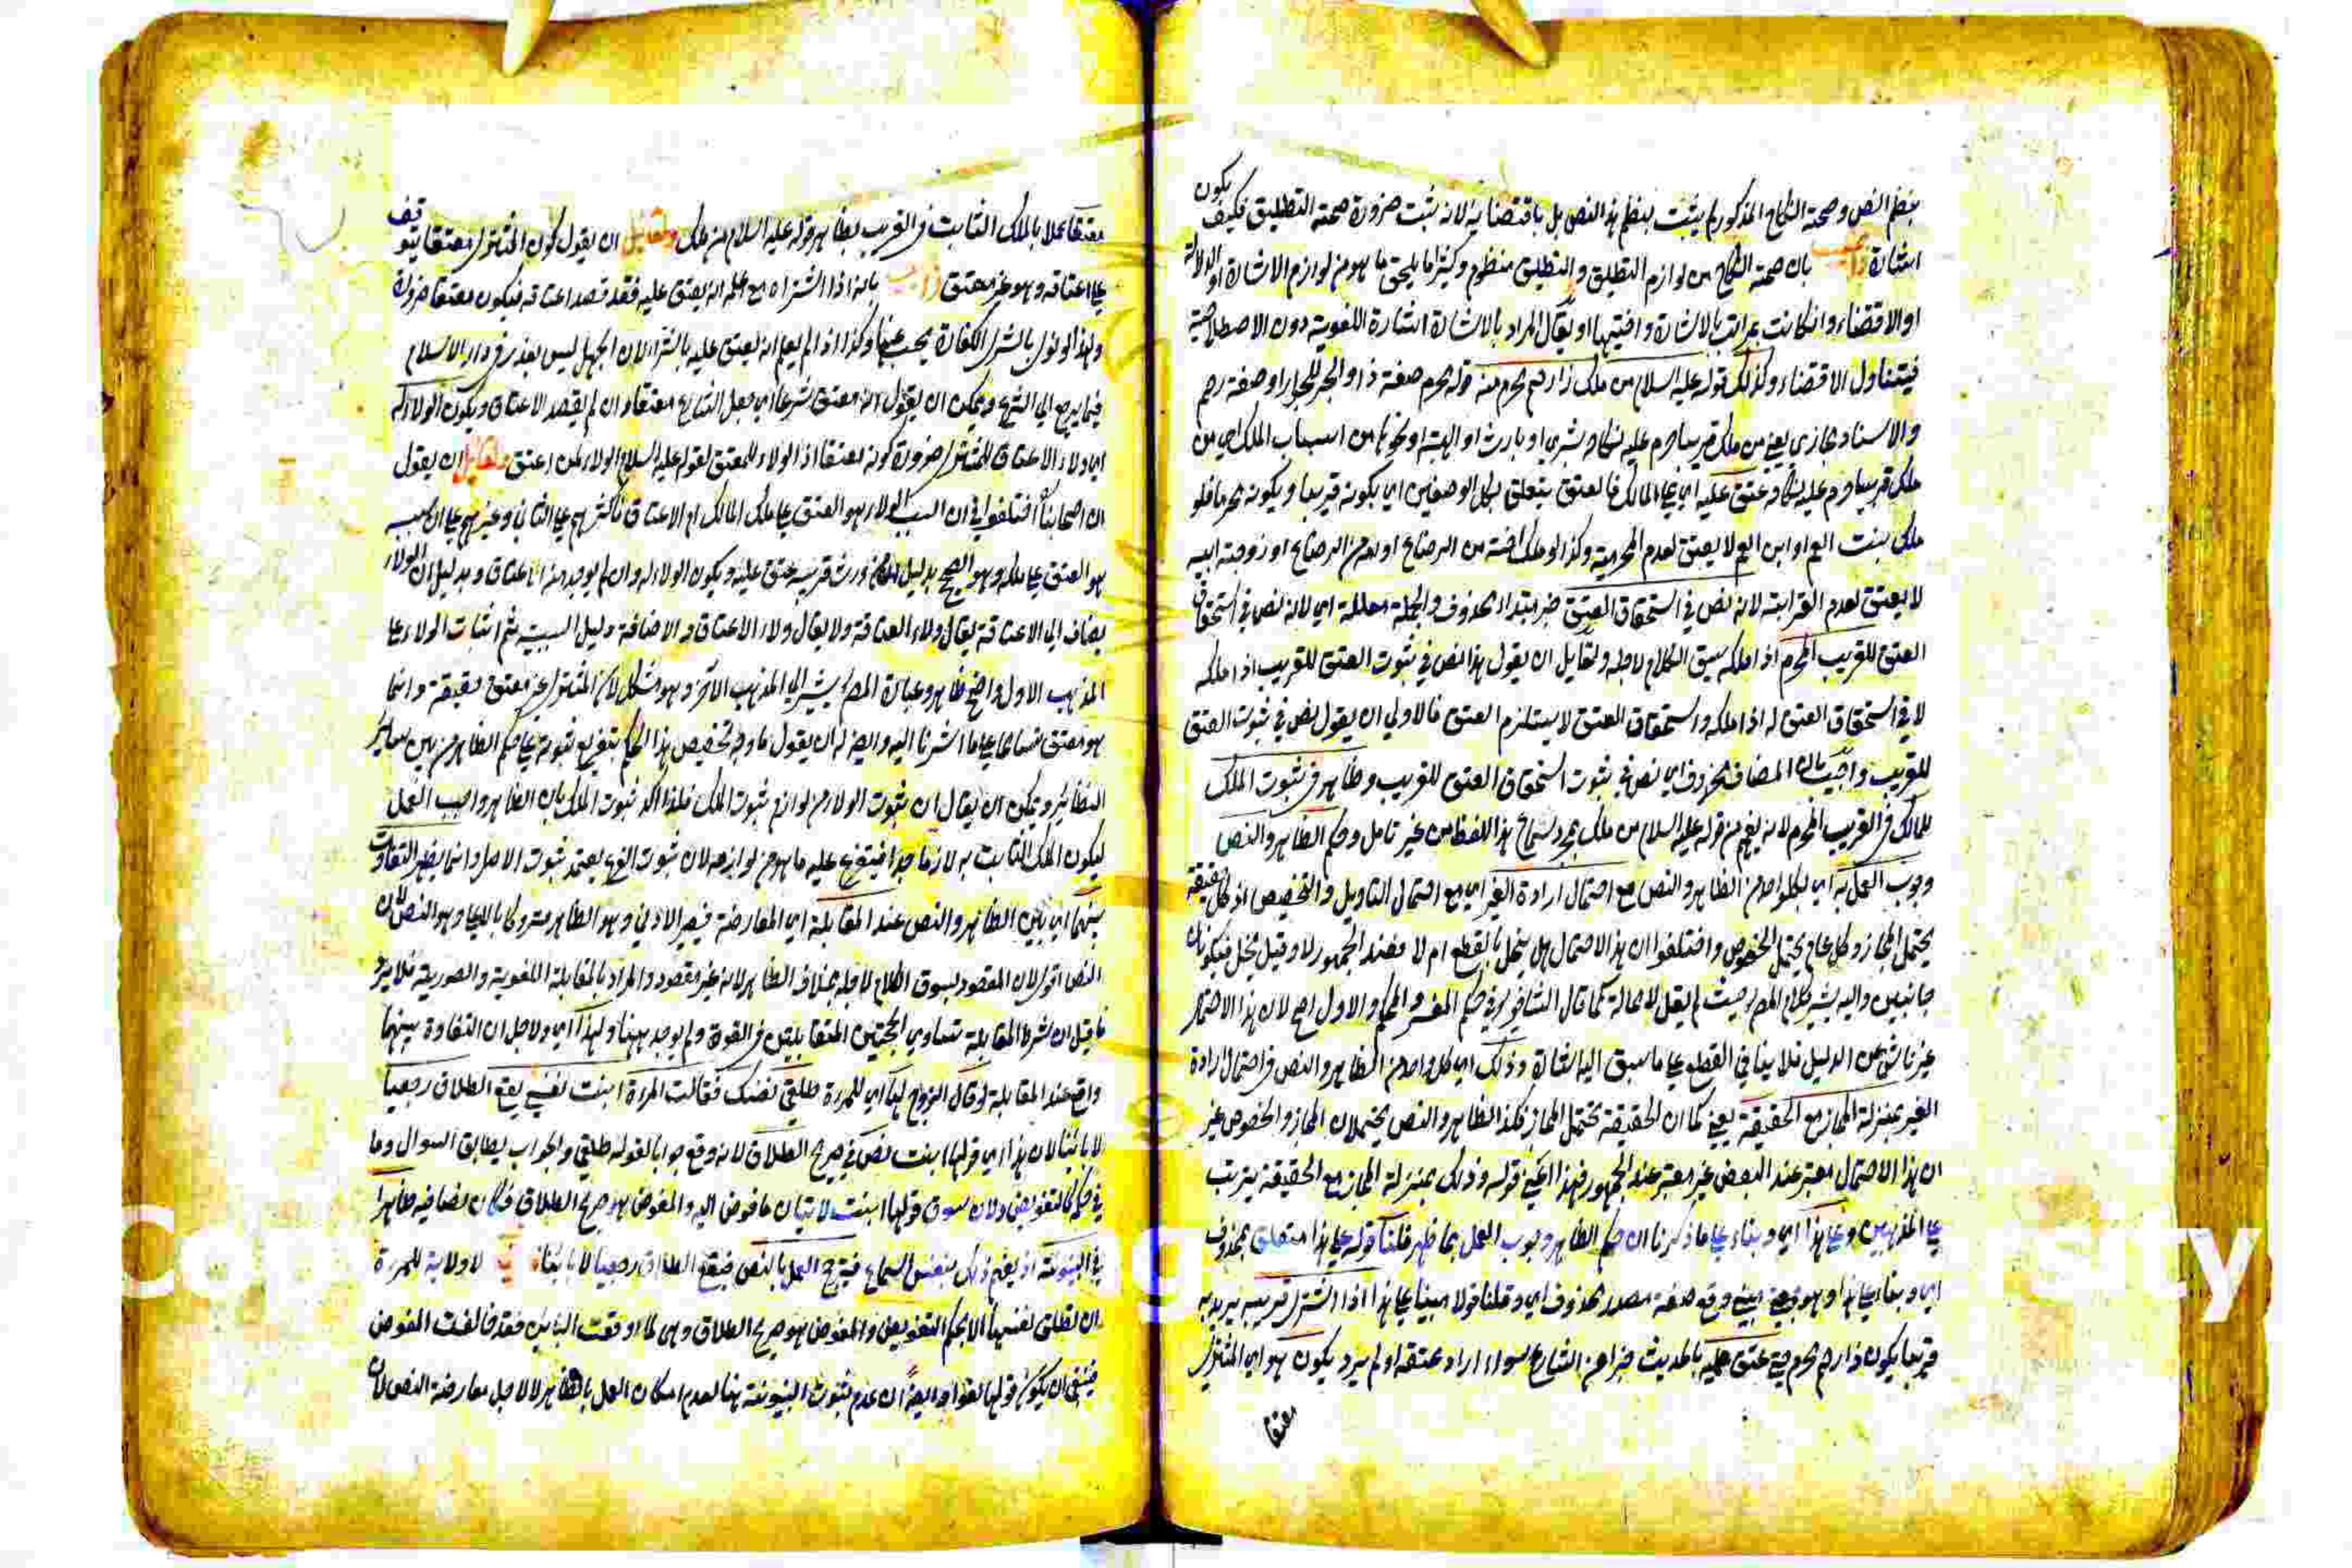 بنظم النص وصحة النكاح المذكور لم يثبت بنظم هذا النص بل باقتضائه لانه يثبت ضرورة صحة التطليق فكيف يكون
اشارة بان صحة النكاح من لوازم التطليق والتطليق منظوم وكثيرا ما يلحق ما هو من لوازم الاشارة او الدلالة
او الاقتضاء وان كانت بالاشارة او يقال المراد بالاشارة اشارة اللغوية دون الاصطلاحية
فيتناول الاقتضاء وكذلك قوله عليه السلام من ملك ذا رحم محرم منه قوله محرم صفة ذا والجر للجوار او صفة رحم
والاسناد مجازي يعني من ملك قريبا حرم عليه نكاحه بشرى او بارث او الهبة او نحوها من اسباب الملك اي من
ملك قريبا حرم عليه نكاحه عتق عليه اي على المالك فالعتق يتعلق بكل الوصفين اي بكونه قريبا وبكونه محرما فلو
ملك بنت العم او ابن العم لا يعتق لعدم المحرمية وكذا لو ملك اخته من الرضاع او امه من الرضاع او زوجة ابيه
لا يعتق لعدم القرابة لانه نص في استحقاق العتق خبر مبتداء محذوف والجملة معللة اي لانه نص في استحقاق
العتق للقريب المحرم اذا ملكه سيق الكلام لاجله ولقايل ان يقول هذا نص في ثبوت العتق للقريب اذا ملكه
لا في استحقاق العتق له اذا ملكه واستحقاق العتق لا يستلزم العتق فالاولى ان يقول نص في ثبوت العتق
للقريب واجيب بان المضاف محذوف اي نص في ثبوت استحقاق العتق للقريب وظاهر في ثبوت الملك
للمالك في القريب المحرم لانه يفهم من قوله عليه السلام من ملك بمجرد سماع هذا اللفظ من غير تامل وحكم الظاهر والنص
وجوب العمل به اي بكل واحد من الظاهر والنص مع احتمال ارادة الغير اي مع احتمال التاويل والتخصيص اذ كل حقيقة
يحتمل المجاز وكل عام يحتمل الخصوص واختلفوا ان هذا الاحتمال هل يخل بالقطع ام لا فعند الجمهور لا وقيل يخل فيكون
جانبين واليه يشير كلام المص حيث لم يقل لا محالة كما قال الشافي في حكم المفسر والمحكم والاول اصح لان هذا الاحتمال
غير ناش عن الدليل فلا ينافي القطع على ما سبق اليه اشارة وذلك اي كل واحد من الظاهر والنص في احتمال ارادة
الغير بمنزلة المجاز مع الحقيقة يعني كما ان الحقيقة تحتمل المجاز فكذا الظاهر والنص يحتملان المجاز والخصوص غير
ان هذا الاحتمال معتبر عند البعض غير معتبر عند الجمهور فهذا قوله وذلك بمنزلة المجاز مع الحقيقة يترتب
على المذهبين وعلى هذا اي وبناء على ما ذكرنا ان حكم الظاهر وجوب العمل بما ظهر قلنا قوله على هذا متعلق بمحذوف
اي وبناء على هذا وهو وقع صفة مصدر محذوف اي وقلنا قولا مبنيا على هذا اذا اشترى قريبه
قريبا يكون ذا رحم محرم حتى عتق عليه بالحديث سواء اراد عتقه او لم يرد يكون هو اي المشتري
معتقا
معتقا عملا بالملك الثابت في القريب بظاهر قوله عليه السلام من ملك ولقايل ان يقول كون المشتري معتقا يتوقف
على اعتاقه وهو غير معتق بانه اذا اشتراه مع علمه انه يعتق عليه فقد قصد اعتاقه فيكون معتقا ضرورة
ولهذا لو نوى بالشرى الكفارة يجب عنها وكذا اذا لم يعلم انه يعتق عليه بالشرى لان الجهل ليس بعذر في دار الاسلام
فيما يرجع الى الشرع ويمكن ان يقول انه معتق شرعا اي جعل الشارع معتقا وان لم يقصد الاعتاق ويكون الولاء له
اي ولاء الاعتاق للمشتري ضرورة كونه معتقا اذ الولاء للمعتق لقوله عليه السلام الولاء لمن اعتق ولقايل ان يقول
ان اصحابنا اختلفوا في ان السبب الولاء هو العتق على ملك المالك ام الاعتاق فاكثرهم على الثاني وغيرهم على ان سببه
هو العتق على ملكه وهو الصحيح بدليل ان من ورث قريبه عتق عليه ويكون الولاء له وان لم يوجد منه اعتاق وبدليل ان الولاء
يضاف الى العتاقة يقال ولاء العتاقة ولا يقال ولاء الاعتاق والاضافة دليل السببية ثم اثبات الولاء على
المذهب الاول واضح ظاهر وعبارة المص يشير الى المذهب الاخر وهو مشكل لان المشتري غير معتق حقيقة وانما
هو معتق على ما اشرنا اليه وايضا له ان يقول ما وجه تخصيص هذا الحكم بتفريع ثبوته على حكم الظاهر من بين سائر
النظائر ويمكن ان يقال ان ثبوت الولاء من لوازم ثبوت الملك فلذا اكد ثبوت الملك بان الظاهر واجب العمل
ليكون الملك الثابت به لازما جدا فيتفرع عليه ما هو من لوازمه لان ثبوت الفرع يعتمد ثبوت الاصل وانما يظهر التفاوت
بينهما اي بين الظاهر والنص عند المقابلة اي المعارضة فيصير الادنى وهو الظاهر متروكا بالاعلى وهو النص لان
النص اقوى لان المقصود بسوق الكلام لاجله بخلاف الظاهر لانه غير مقصود والمراد بالمقابلة اللغوية والصورية فلا يرد
ما قيل ان شرط المقابلة تساوي الحجتين المتقابلتين في القوة ولم يوجد ههنا ولهذا اي ولاجل ان التفاوت بينهما
واقع عند المقابلة لو قال الزوج لها اي للمرءة طلقي نفسك فقالت المرءة ابنت نفسي يقع الطلاق رجعيا
لا باينا لان هذا اي قولها ابنت نص في صريح الطلاق لانه وقع جوابا لقوله طلقي والجواب يطابق السوال وما
في حكمه كالتفويض ولان سوق قولها ابنت لاتيان ما فوض اليه والمفوض هو صريح الطلاق فكان نصا فيه ظاهرا
في البينونة اذ يفهم ذلك بنفس السماع فيترجح العمل بالنص فيقع الطلاق رجعيا لا باينا لا ولاية للمرءة
ان تطلق نفسها الا بحكم التفويض والمفوض هو صريح الطلاق وهي لما اوقعت الباين فقد خالفت المفوض
فينبغي ان يكون قولها لغوا وايضا ان عدم ثبوت البينونة هنا لعدم امكان العمل بالظاهر لا لاجل معارضة النص لان